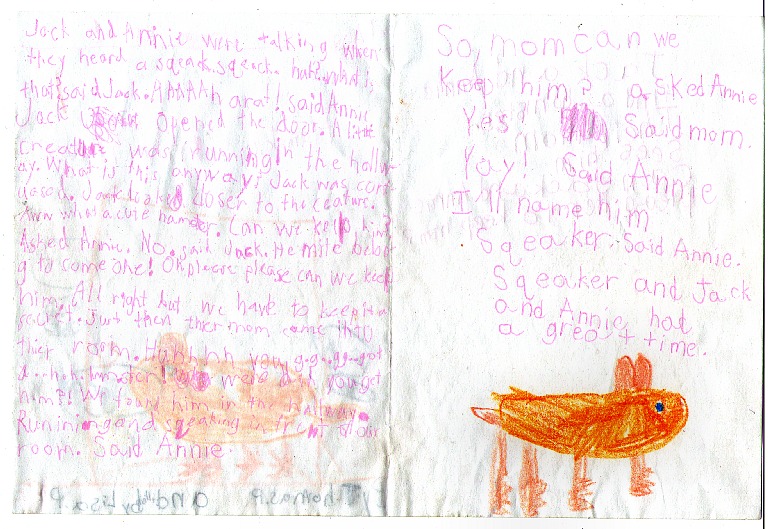 Jack and Annie were talking when
they heard a squeack.squeack. huh? what is
that? said Jack. AHAHAh a rat! said Annie
Jack opened the door. A little
creature was running in the hallw-
ay. What is this anyway? Jack was
Jack looked closer to the ceature.
Aww what a cute hamster. Can we keep him?
Asked Annie. No. said Jack. He mite belon
g to some one! Oh please please can we keep
him. All right but we have to keep it a
secret. Just then thier mom came into
thier room. Hahhhhh you g-g-gg-got
a hamster! were did you get
him?! We found him in the hallway
Runining and sqeaking in front of our
room. Said Annie.
So, mom can we
keep him? asked Annie
Yes! Said mom.
Yay! Said Annie
I'll name him
Sqeaker. Said Annie.
Sqeaker and Jack
and Annie had
a great time.
By Thomas.P. and by Lisa.P